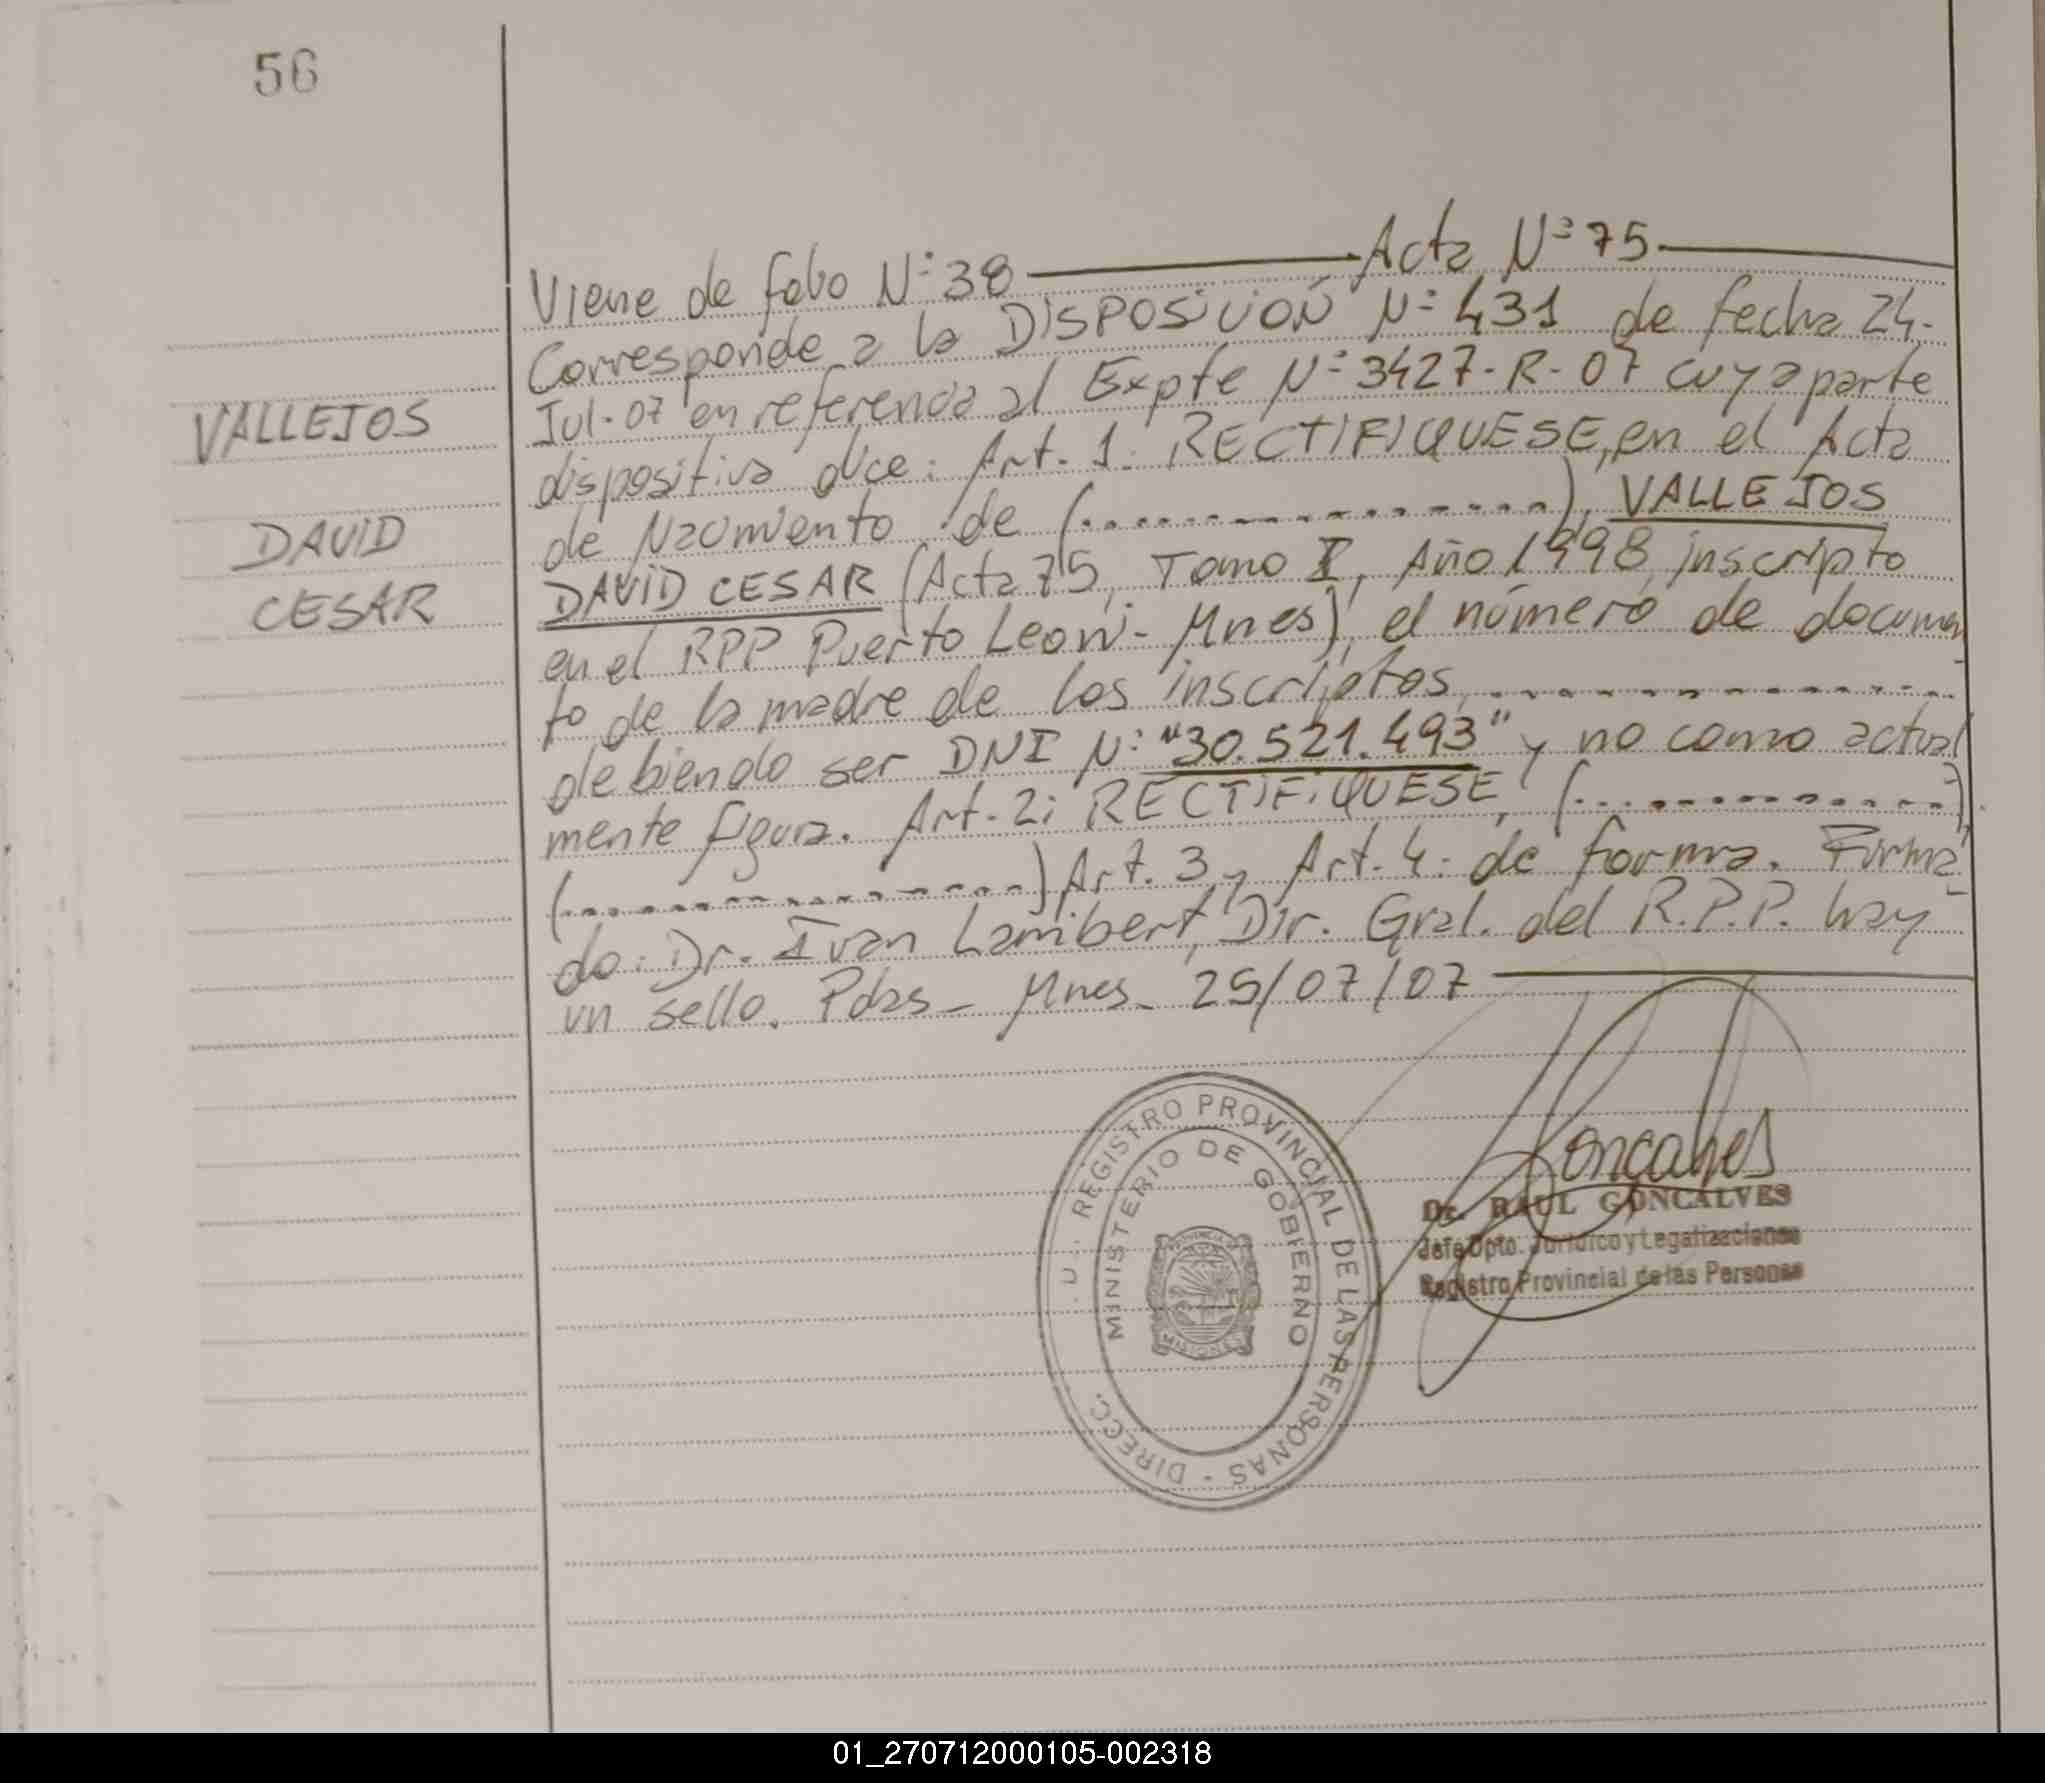 56
Viene de folio N° 38 Acta N° 75
Corresponde a la DISPOSICION N° 431 de fecha 24-
Jul-07 en referencia al Expte N° 3427-R-07 cuya parte
dispositiva dice: Art. 1: RECTIFIQUESE, en el Acta
de Nacimiento de (..............), VALLEJOS
DAVID CESAR (Acta 75, Tomo I, Año 1998, inscripto
en el RPP Puerto Leoni - Mnes), el número de documen
to de la madre de los inscriptos, ..............
debiendo ser DNI N° "30.521.493" y no como actual
mente figura. Art. 2: RECTIFIQUESE, (..............)
(..............) Art. 3 y Art. 4: de forma. Firma
do: Dr. Ivan Lambert, Dir. Gral. del R.P.P. hay
un sello. Pdas - Mnes - 25/07/07
VALLEJOS
DAVID
CESAR
REGISTRO PROVINCIAL DE LAS PERSONAS - DIRECC.
MINISTERIO DE GOBIERNO
PROVINCIA
MISIONES
Goncalves
Dr. RAUL GONCALVES
Jefe Dpto. Jurídico y Legalizaciones
Registro Provincial de las Personas
01_270712000105-002318